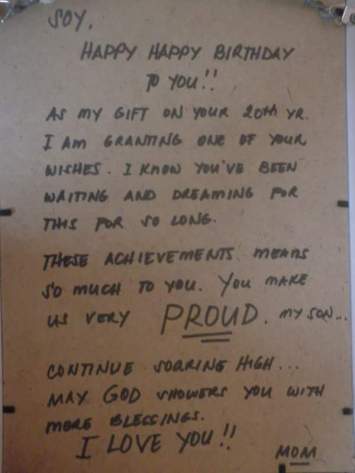 SOY,
HAPPY HAPPY BIRTHDAY
TO YOU!!
AS MY GIFT ON YOUR 20TH YR.
I AM GRANTING ONE OF YOUR
WISHES. I KNOW YOU'VE BEEN
WAITING AND DREAMING FOR
THIS FOR SO LONG.
THESE ACHIEVEMENTS MEANS
SO MUCH TO YOU. YOU MAKE
US VERY PROUD. MY SON...
CONTINUE SOARING HIGH...
MAY GOD SHOWERS YOU WITH
MORE BLESSINGS.
I LOVE YOU!!
MOM